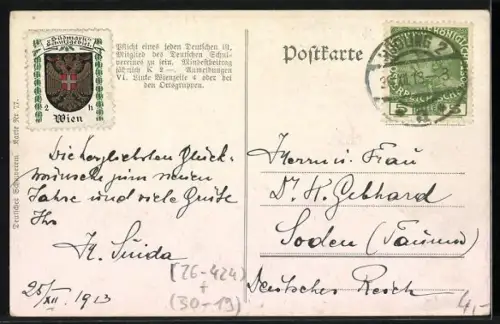 Südmark
Schutzgebiet
2 h
Wien
Pflicht eines jeden Deutschen ist,
Mitglied des Deutschen Schul-
vereines zu sein. Mindestbeitrag
jährlich K 2·—. Anmeldungen
VI. Linke Wienzeile 4 oder bei
den Ortsgruppen.
Deutscher Schulverein. Karte Nr.
Postkarte
MÖDLING 2
5
Die herzlichsten Glück-
wünsche zum neuen
Jahre und viele Grüße
Ihr
K. Suida
25/XII. 1913
[26-424]
+
(30-13)
Herrn u Frau
Dr. K. Gebhard
Soden (Taunus)
Deutsches Reich
4,-